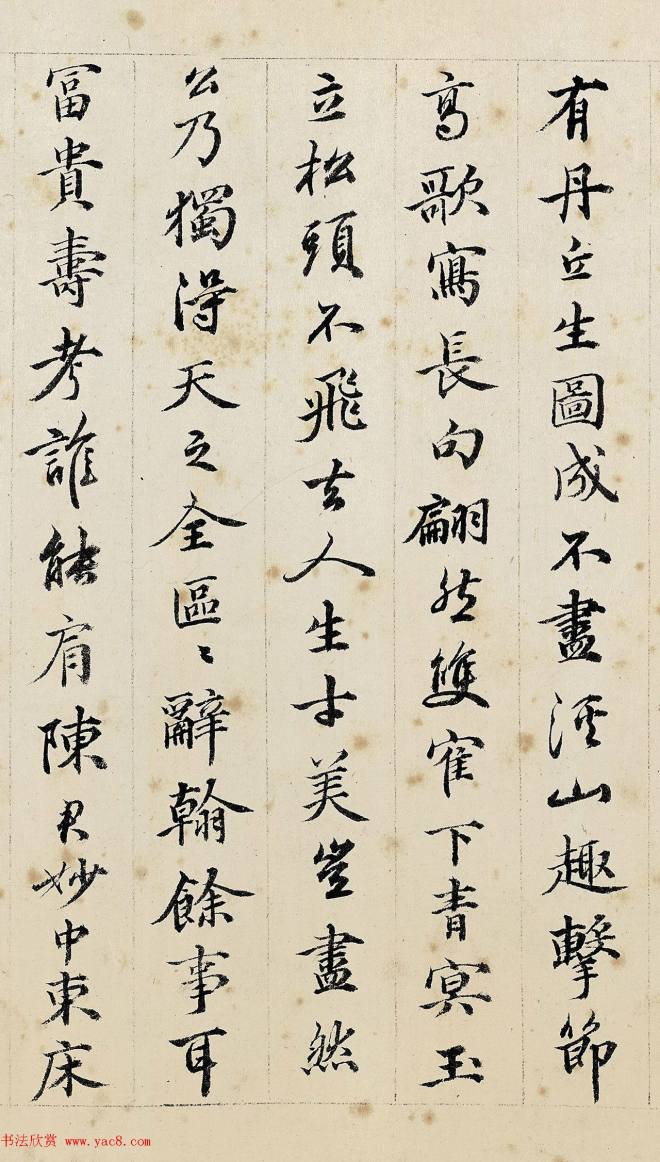 有丹丘生圖成不盡溪山趣擊節
高歌寫長句翩然雙隺下青冥玉
立松頭不飛去人生才美豈盡然
公乃獨得天之全區〻辭翰餘事耳
富貴壽考誰能肩陳君妙中東床
书法欣赏 www.yac8.com